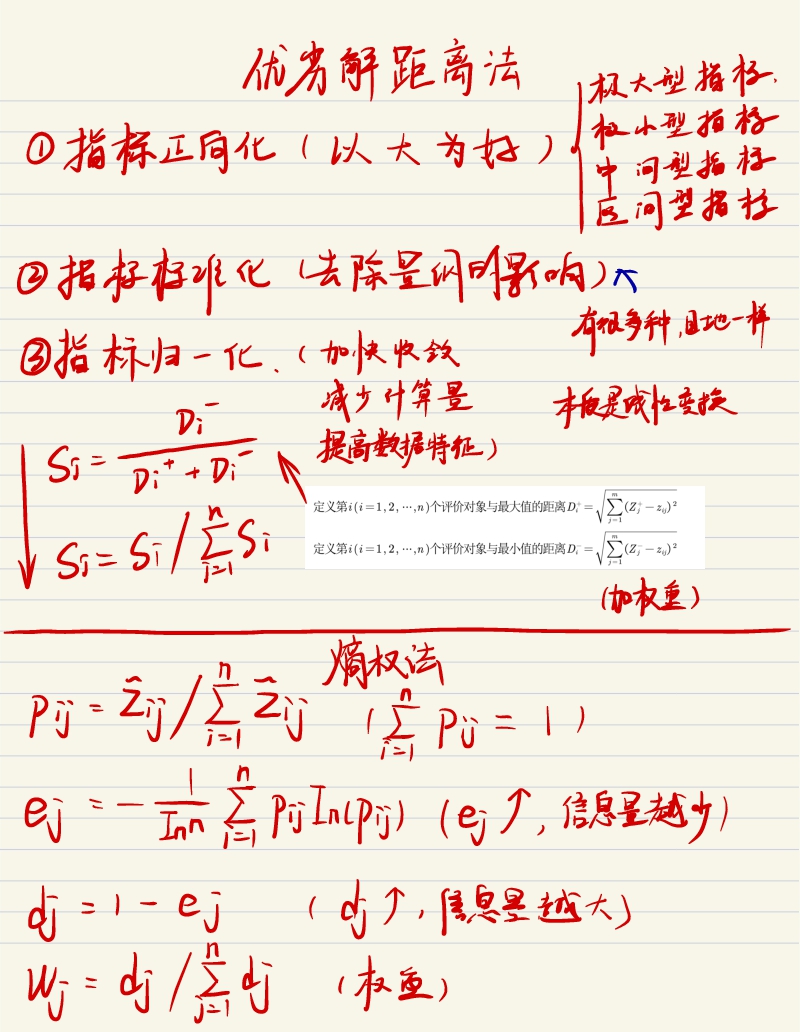 优劣解距离法
① 指标正向化（以大为好）
极大型指标.
极小型指标
中间型指标
区间型指标
② 指标标准化（去除量纲的影响）
有很多种,且地一样
③ 指标归一化.（加快收敛
减少计算量
提高数据特征）
本质是线性变换
Si = Di⁻ / (Di⁺ + Di⁻)
定义第i(i=1,2,⋯,n)个评价对象与最大值的距离Dᵢ⁺=√(∑ⱼ₌₁ᵐ(Zⱼ⁺−zᵢⱼ)²)
Si = Si / ∑ⱼ₌₁ⁿ Si
定义第i(i=1,2,⋯,n)个评价对象与最小值的距离Dᵢ⁻=√(∑ⱼ₌₁ᵐ(Zⱼ⁻−zᵢⱼ)²)
（加权重）
熵权法
pij = z̃ij / ∑ᵢ₌₁ⁿ z̃ij （∑ᵢ₌₁ⁿ pij = 1）
ej = − 1/Inn ∑ᵢ₌₁ⁿ pij In(pij) （ej↑, 信息量越少）
dj = 1 − ej （dj↑, 信息量越大）
Wj = dj / ∑ⱼ₌₁ⁿ dj （权重）